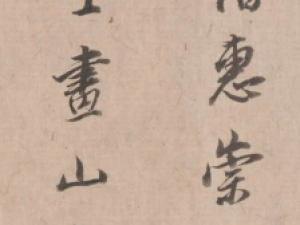 惠崇
畫山